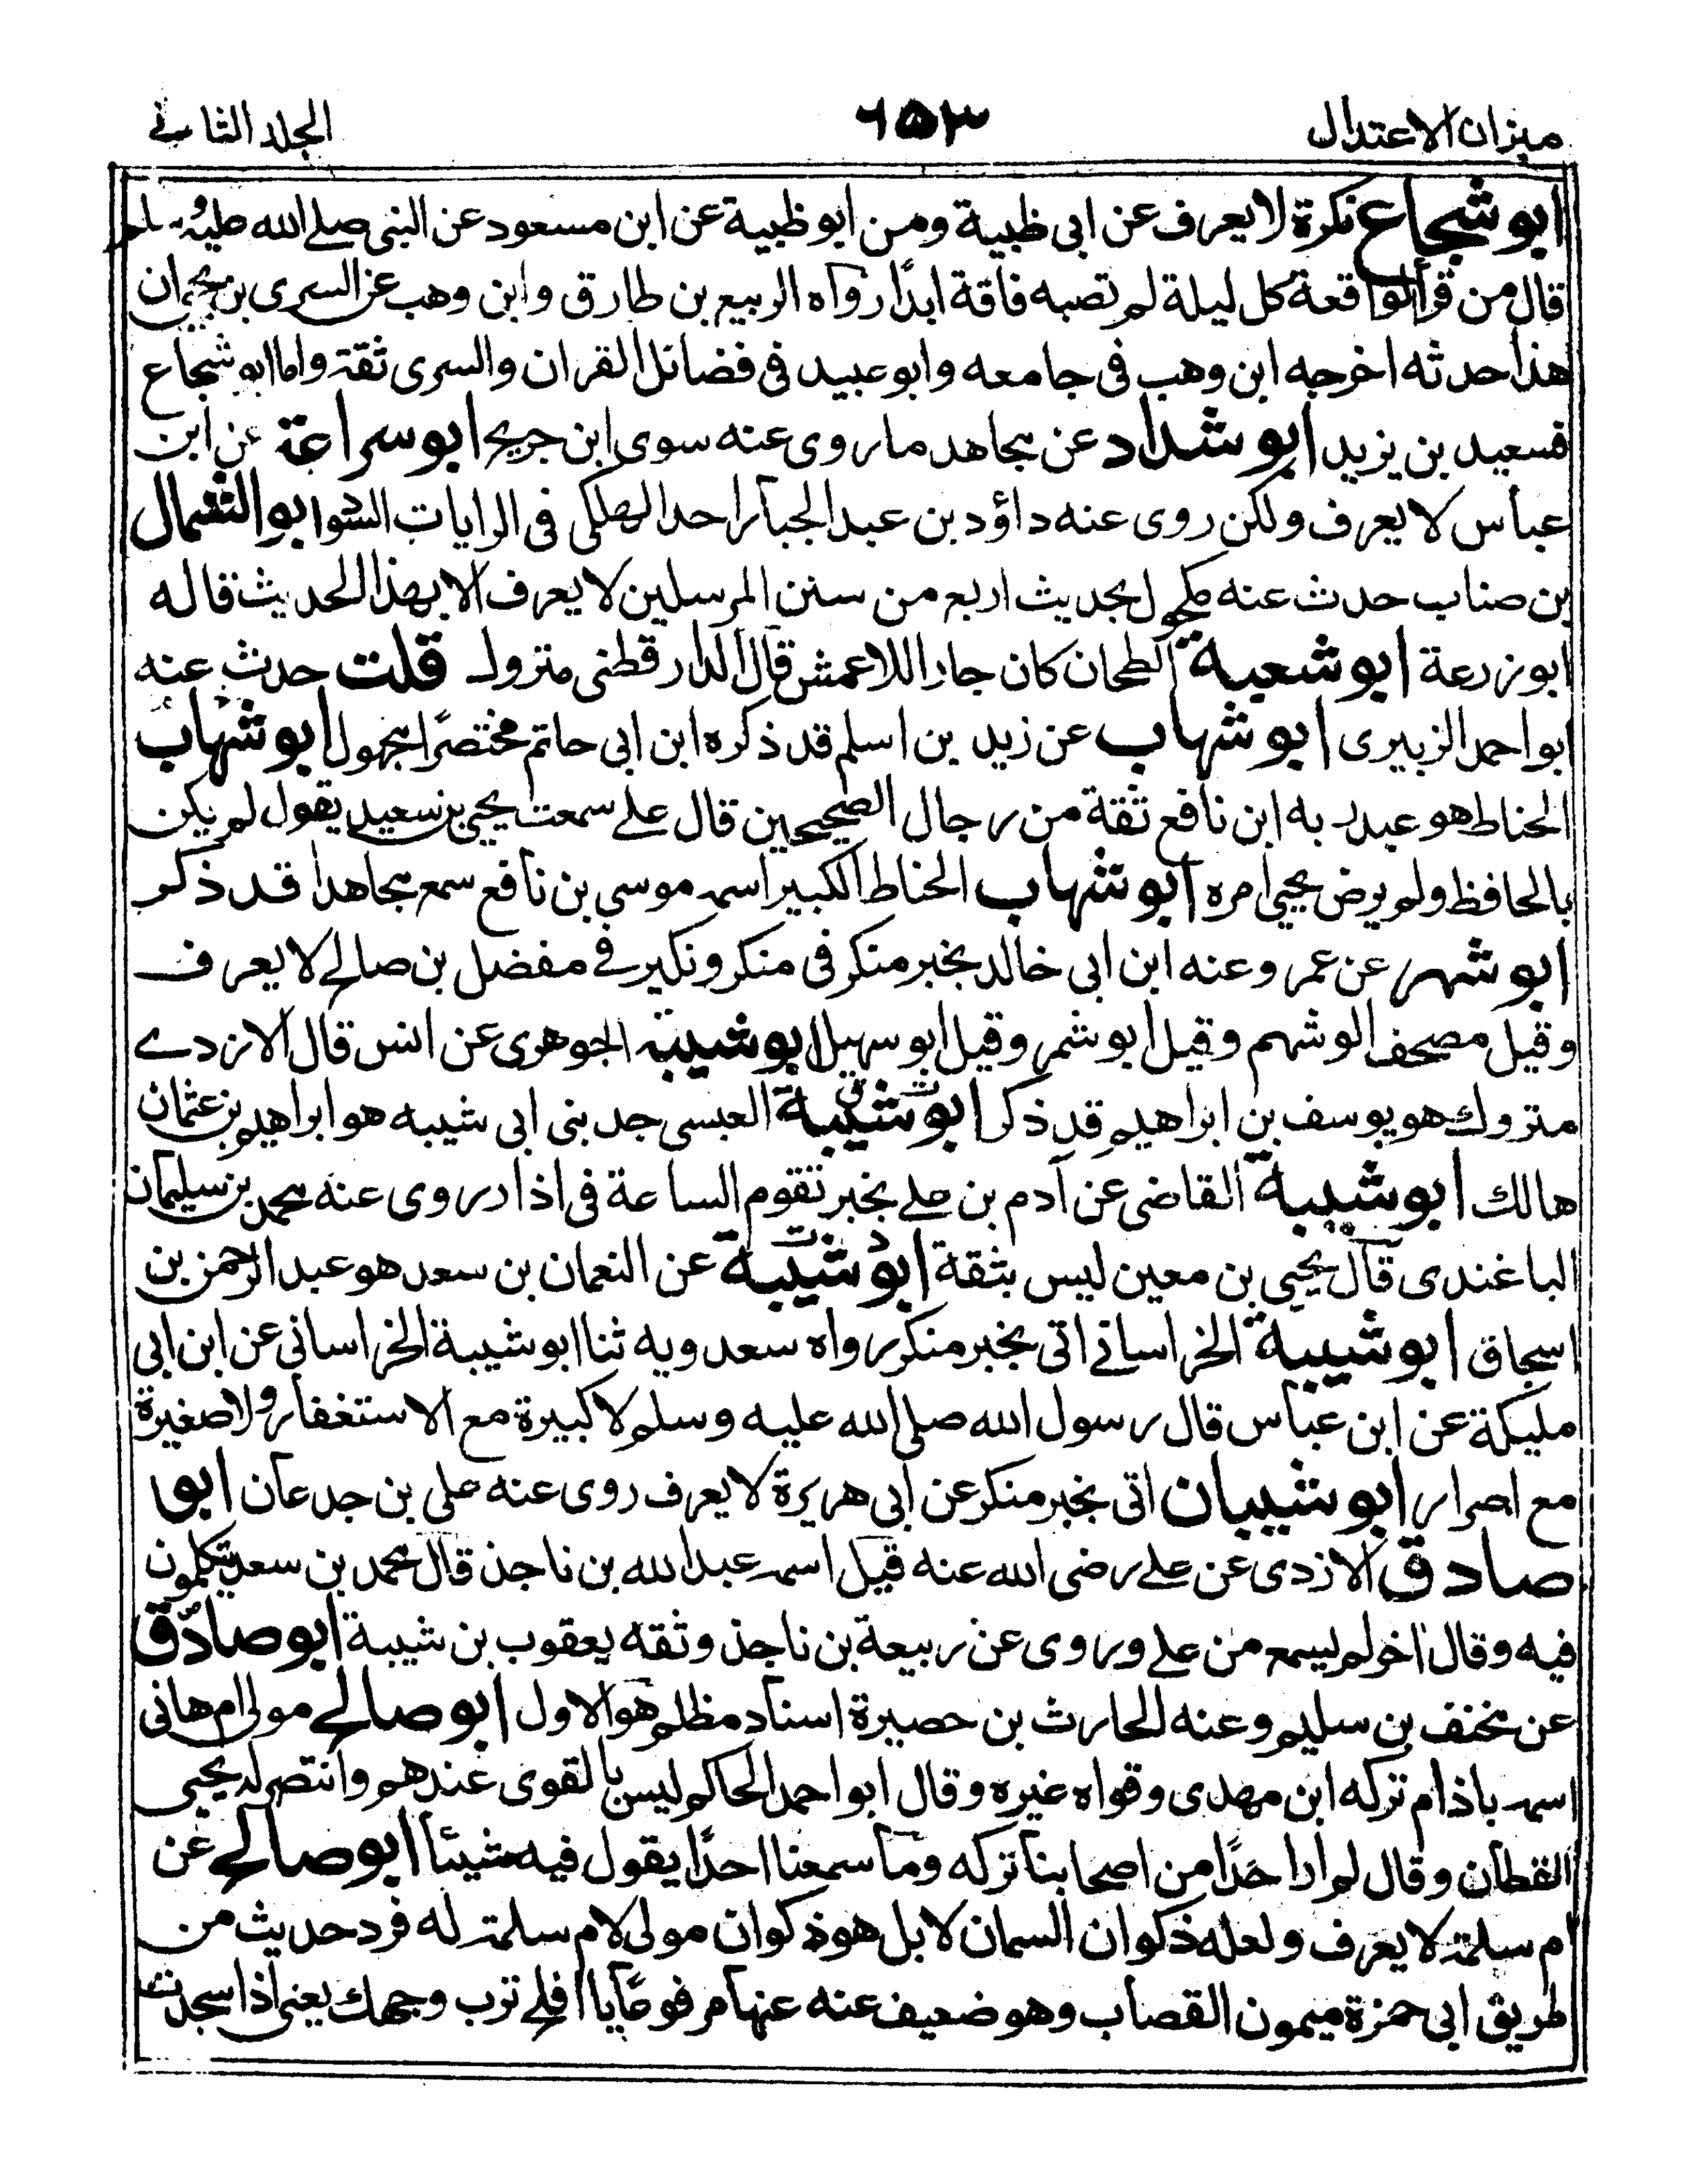 ميزان الاعتدال
٦٥٣
الجلد الثانے
ابو شجاع نكرة لا يعرف عن ابى ظبية ومن ابو ظبية عن ابن مسعود عن النبى صلے الله عليه وسلم
قال من قرأ الواقعة كل ليلة لم تصبه فاقة ابدًا رواه الربيع بن طارق وابن وهب عن السرى بن يحيى ان
هذا حدثه اخرجه ابن وهب فى جامعه وابو عبيد فى فضائل القران والسرى ثقة واما ابو شجاع
فسعيد بن يزيد ابو شداد عن مجاهد ما روى عنه سوى ابن جريج ابو سراعة عن ابن
عباس لا يعرف ولكن روى عنه داؤد بن عبد الجبار احد الهلكى فى الرايات السود ابو الشمال
بن ضباب حدث عنه مكحول بحديث اربع من سنن المرسلين لا يعرف الا بهذا الحديث قاله
ابو زرعة ابو شعيبة الطحان كان جارا للاعمش قال الدارقطنى متروك قلت حدث عنه
ابو احمد الزبيرى ابو شهاب عن زيد بن اسلم قد ذكره ابن ابى حاتم مختصرًا مجهول ابو شهاب
الحناط هو عبد ربه ابن نافع ثقة من رجال الصحيحين قال علے سمعت يحيى بن سعيد يقول لم يكن
بالحافظ ولم يرض يحيى امره ابو شهاب الحناط الكبير اسمه موسى بن نافع سمع مجاهدا قد ذكر
ابو شهر عن عمر وعنه ابن ابى خالد بخبر منكر فى منكر ونكير فے مفضل بن صالح لا يعرف
وقيل مصحف ابو شهم وقيل ابو شمر وقيل ابو سهيل ابو شيبة الجوهرى عن انس قال الازدے
متروك هو يوسف بن ابراهيم قد ذكر ابو شيبة العبسى جد بنى ابى شيبه هو ابراهيم بن عثمان
هالك ابو شيبة القاضى عن آدم بن علے بخبر تقوم الساعة فى اذار روى عنه محمد بن سليمان
الباغندى قال يحيى بن معين ليس بثقة ابو شيبة عن النعمان بن سعد هو عبد الرحمن بن
اسحاق ابو شيبة الخراسانے اتى بخبر منكر رواه سعدويه ثنا ابو شيبة الخراسانى عن ابن ابى
مليكة عن ابن عباس قال رسول الله صلى الله عليه وسلم لا كبيرة مع الاستغفار ولا صغيرة
مع اصرار ابو شيبان اتى بخبر منكر عن ابى هريرة لا يعرف روى عنه على بن جدعان ابو
صادق الازدى عن علے رضى الله عنه قيل اسمه عبد الله بن ناجذ قال محمد بن سعد يتكلمون
فيه وقال اخر لم يسمع من علے وروى عن ربيعة بن ناجذ وثقه يعقوب بن شيبة ابو صادق
عن مخنف بن سليم وعنه الحارث بن حصيرة اسناد مظلم هو الاول ابو صالح مولى ام هانى
اسمه باذام تركه ابن مهدى وقواه غيره وقال ابو احمد الحاكم ليس بالقوى عندهم وانتصر له يحيى
القطان وقال لم ار احدًا من اصحابنا تركه وما سمعنا احدًا يقول فيه شيئا ابو صالح عن
ام سلمة لا يعرف ولعله ذكوان السمان لا بل هو ذكوان مولى لام سلمة له فرد حديث من
طريق ابى حمزة ميمون القصاب وهو ضعيف عنه عنها مرفوعًا يا افلح ترب وجهك يعنى اذا سجدت